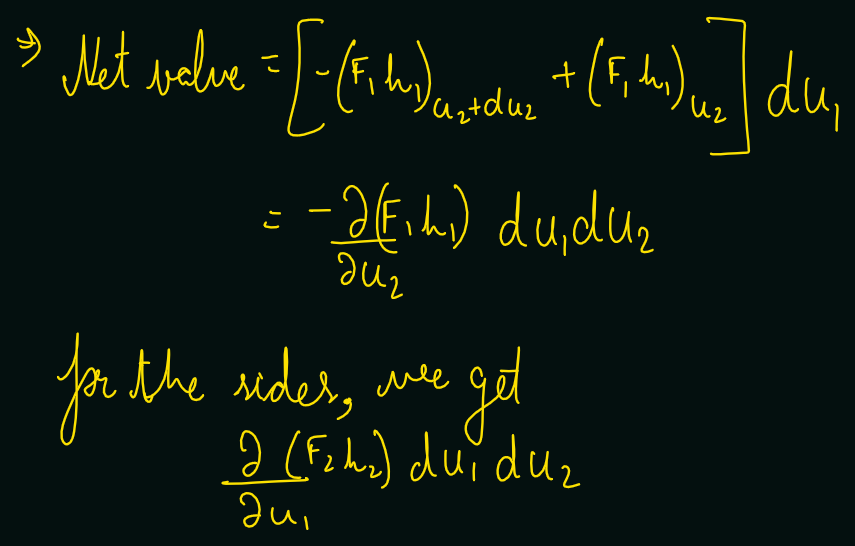 ⇒ Net value = [-(F₁h₁)ᵤ₂₊dᵤ₂ + (F₁h₁)ᵤ₂] du₁
= -∂(F₁h₁)/∂u₂ du₁du₂
for the sides, we get
∂/∂u₁ (F₂h₂) du₁ du₂